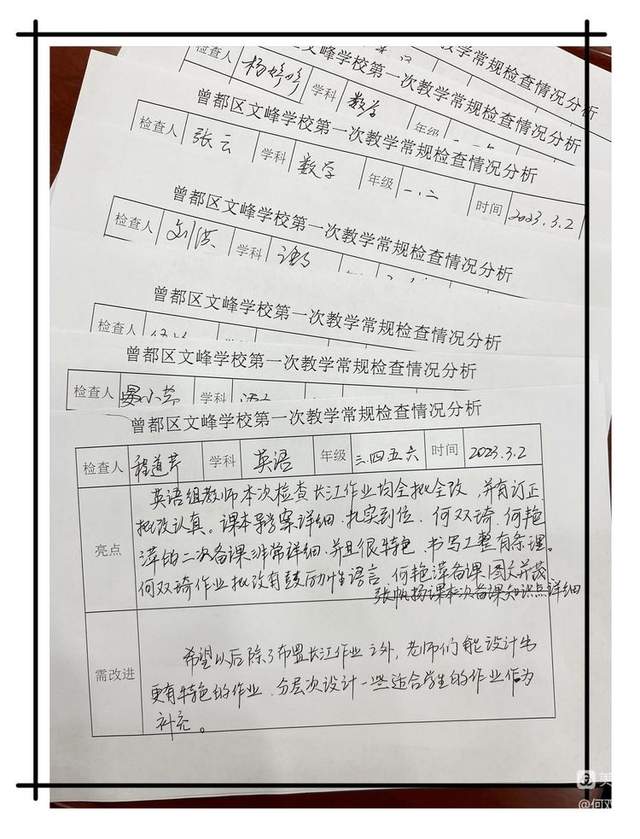 教学常规检查情况分析
检查人 杨婷婷 学科 数学 年级
文峰学校第一次教学常规检查情况分析
曾都区文峰学校第一次教学常规检查情况分析
检查人 张云 学科 数学 年级 一.二 时间 2023.3.2
曾都区文峰学校第一次教学常规检查情况分析
检查人 刘洪 学科 语
曾都区文峰学校第一次教学常规检查情况分析
检查人
曾都区文峰学校第一次教学常规检查情况分析
检查人 晏小芹 学科
曾都区文峰学校第一次教学常规检查情况分析
检查人 程道芹 学科 英语 年级 三.四五六 时间 2023.3.2
亮点
英语组教师本次检查长江作业均全批全改,并有订正,
批改认真。课本导学案详细,扎实到位,何双琦、何艳
萍的二次备课非常详细,并且很特色,书写工整有条理。
何双琦作业批改有鼓励性语言,何艳萍备课图文并茂
张帆扬课本次备课知识点详细
需改进
希望以后除了布置长江作业之外,老师们能设计出
更有特色的作业,分层次设计一些适合学生的作业作为
补充。
美
@何双